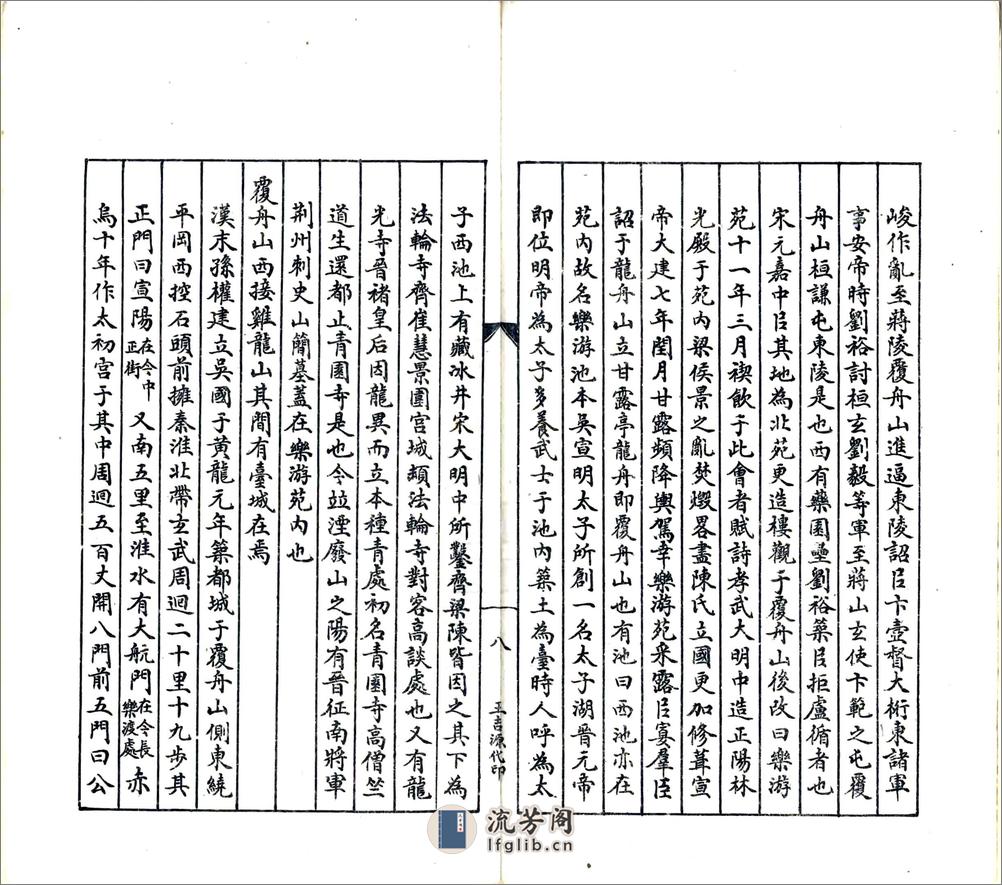 峻作亂至蔣陵覆舟山進逼東陵詔㠯卞壼督大桁東諸軍
事安帝時劉裕討桓玄劉毅等軍至蔣山玄使卞範之屯覆
舟山桓謙屯東陵是也西有藥園壘劉裕築㠯拒盧循者也
宋元嘉中㠯其地為北苑更造樓觀于覆舟山後改曰樂游
苑十一年三月禊飲于此會者賦詩孝武大明中造正陽林
光殿于苑內梁侯景之亂焚燬畧盡陳氏立國更加修葺宣
帝大建七年閏月甘露頻降輿駕幸樂游苑采露㠯宴羣臣
詔于龍舟山立甘露亭龍舟即覆舟山也有池曰西池亦在
苑內故名樂游池本吳宣明太子所創一名太子湖晉元帝
即位明帝為太子多養武士于池內築土為臺時人呼為太
八
王吉源代印
子西池上有藏冰井宋大明中所鑿齊梁陳皆因之其下為
法輪寺齊崔慧景圍宮城頓法輪寺對客高談處也又有龍
光寺晉褚皇后因龍異而立本種青處初名青園寺高僧竺
道生還都止青園寺是也今竝湮廢山之陽有晉征南將軍
荆州刺史山簡墓蓋在樂游苑內也
覆舟山西接雞龍山其間有臺城在焉
漢末孫權建立吳國于黃龍元年築都城于覆舟山側東繞
平岡西控石頭前擁秦淮北帶玄武周迴二十里十九步其
正門曰宣陽在今中正街又南五里至淮水有大航門在今長樂渡處赤
烏十年作太初宮于其中周迴五百丈開八門前五門曰公
流芳阁
lfglib.cn